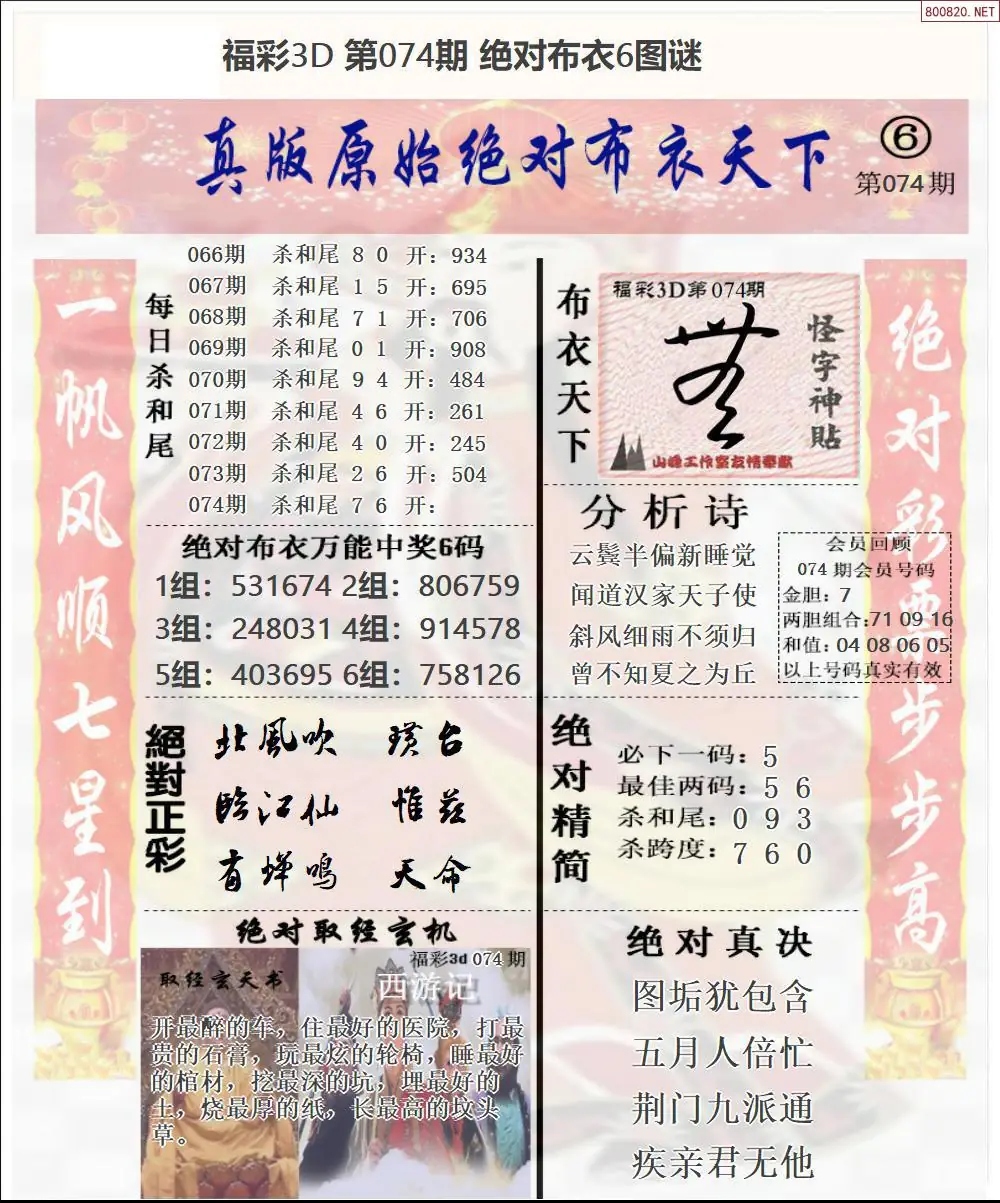 800820.NET
福彩3D 第074期 绝对布衣6图谜
真版原始绝对布衣天下
⑥
第074期
一帆风顺七星到
每日杀和尾
066期 杀和尾 8 0 开: 934
067期 杀和尾 1 5 开: 695
068期 杀和尾 7 1 开: 706
069期 杀和尾 0 1 开: 908
070期 杀和尾 9 4 开: 484
071期 杀和尾 4 6 开: 261
072期 杀和尾 4 0 开: 245
073期 杀和尾 2 6 开: 504
074期 杀和尾 7 6 开:
绝对布衣万能中奖6码
1组: 531674 2组: 806759
3组: 248031 4组: 914578
5组: 403695 6组: 758126
絕對正彩
北風吹 璜台
臨江仙 惟兹
有蝉鸣 天命
绝对取经玄机
福彩3d 074期
取经玄天书
西游记
开最醉的车，住最好的医院，打最
贵的石膏，玩最炫的轮椅，睡最好
的棺材，挖最深的坑；埋最好的
土，烧最厚的纸，长最高的坟头
草。
布衣天下
福彩3D第074期
怪字神貼
山峰工作室友情奉献
分析诗
云鬓半偏新睡觉
闻道汉家天子使
斜风细雨不须归
曾不知夏之为丘
会员回顾
074 期会员号码
金胆: 7
两胆组合:71 09 16
和值: 04 08 06 05
以上号码真实有效
绝对精简
必下一码: 5
最佳两码: 5 6
杀和尾: 0 9 3
杀跨度: 7 6 0
绝对真决
图垢犹包含
五月人倍忙
荆门九派通
疾亲君无他
绝对彩票步步高